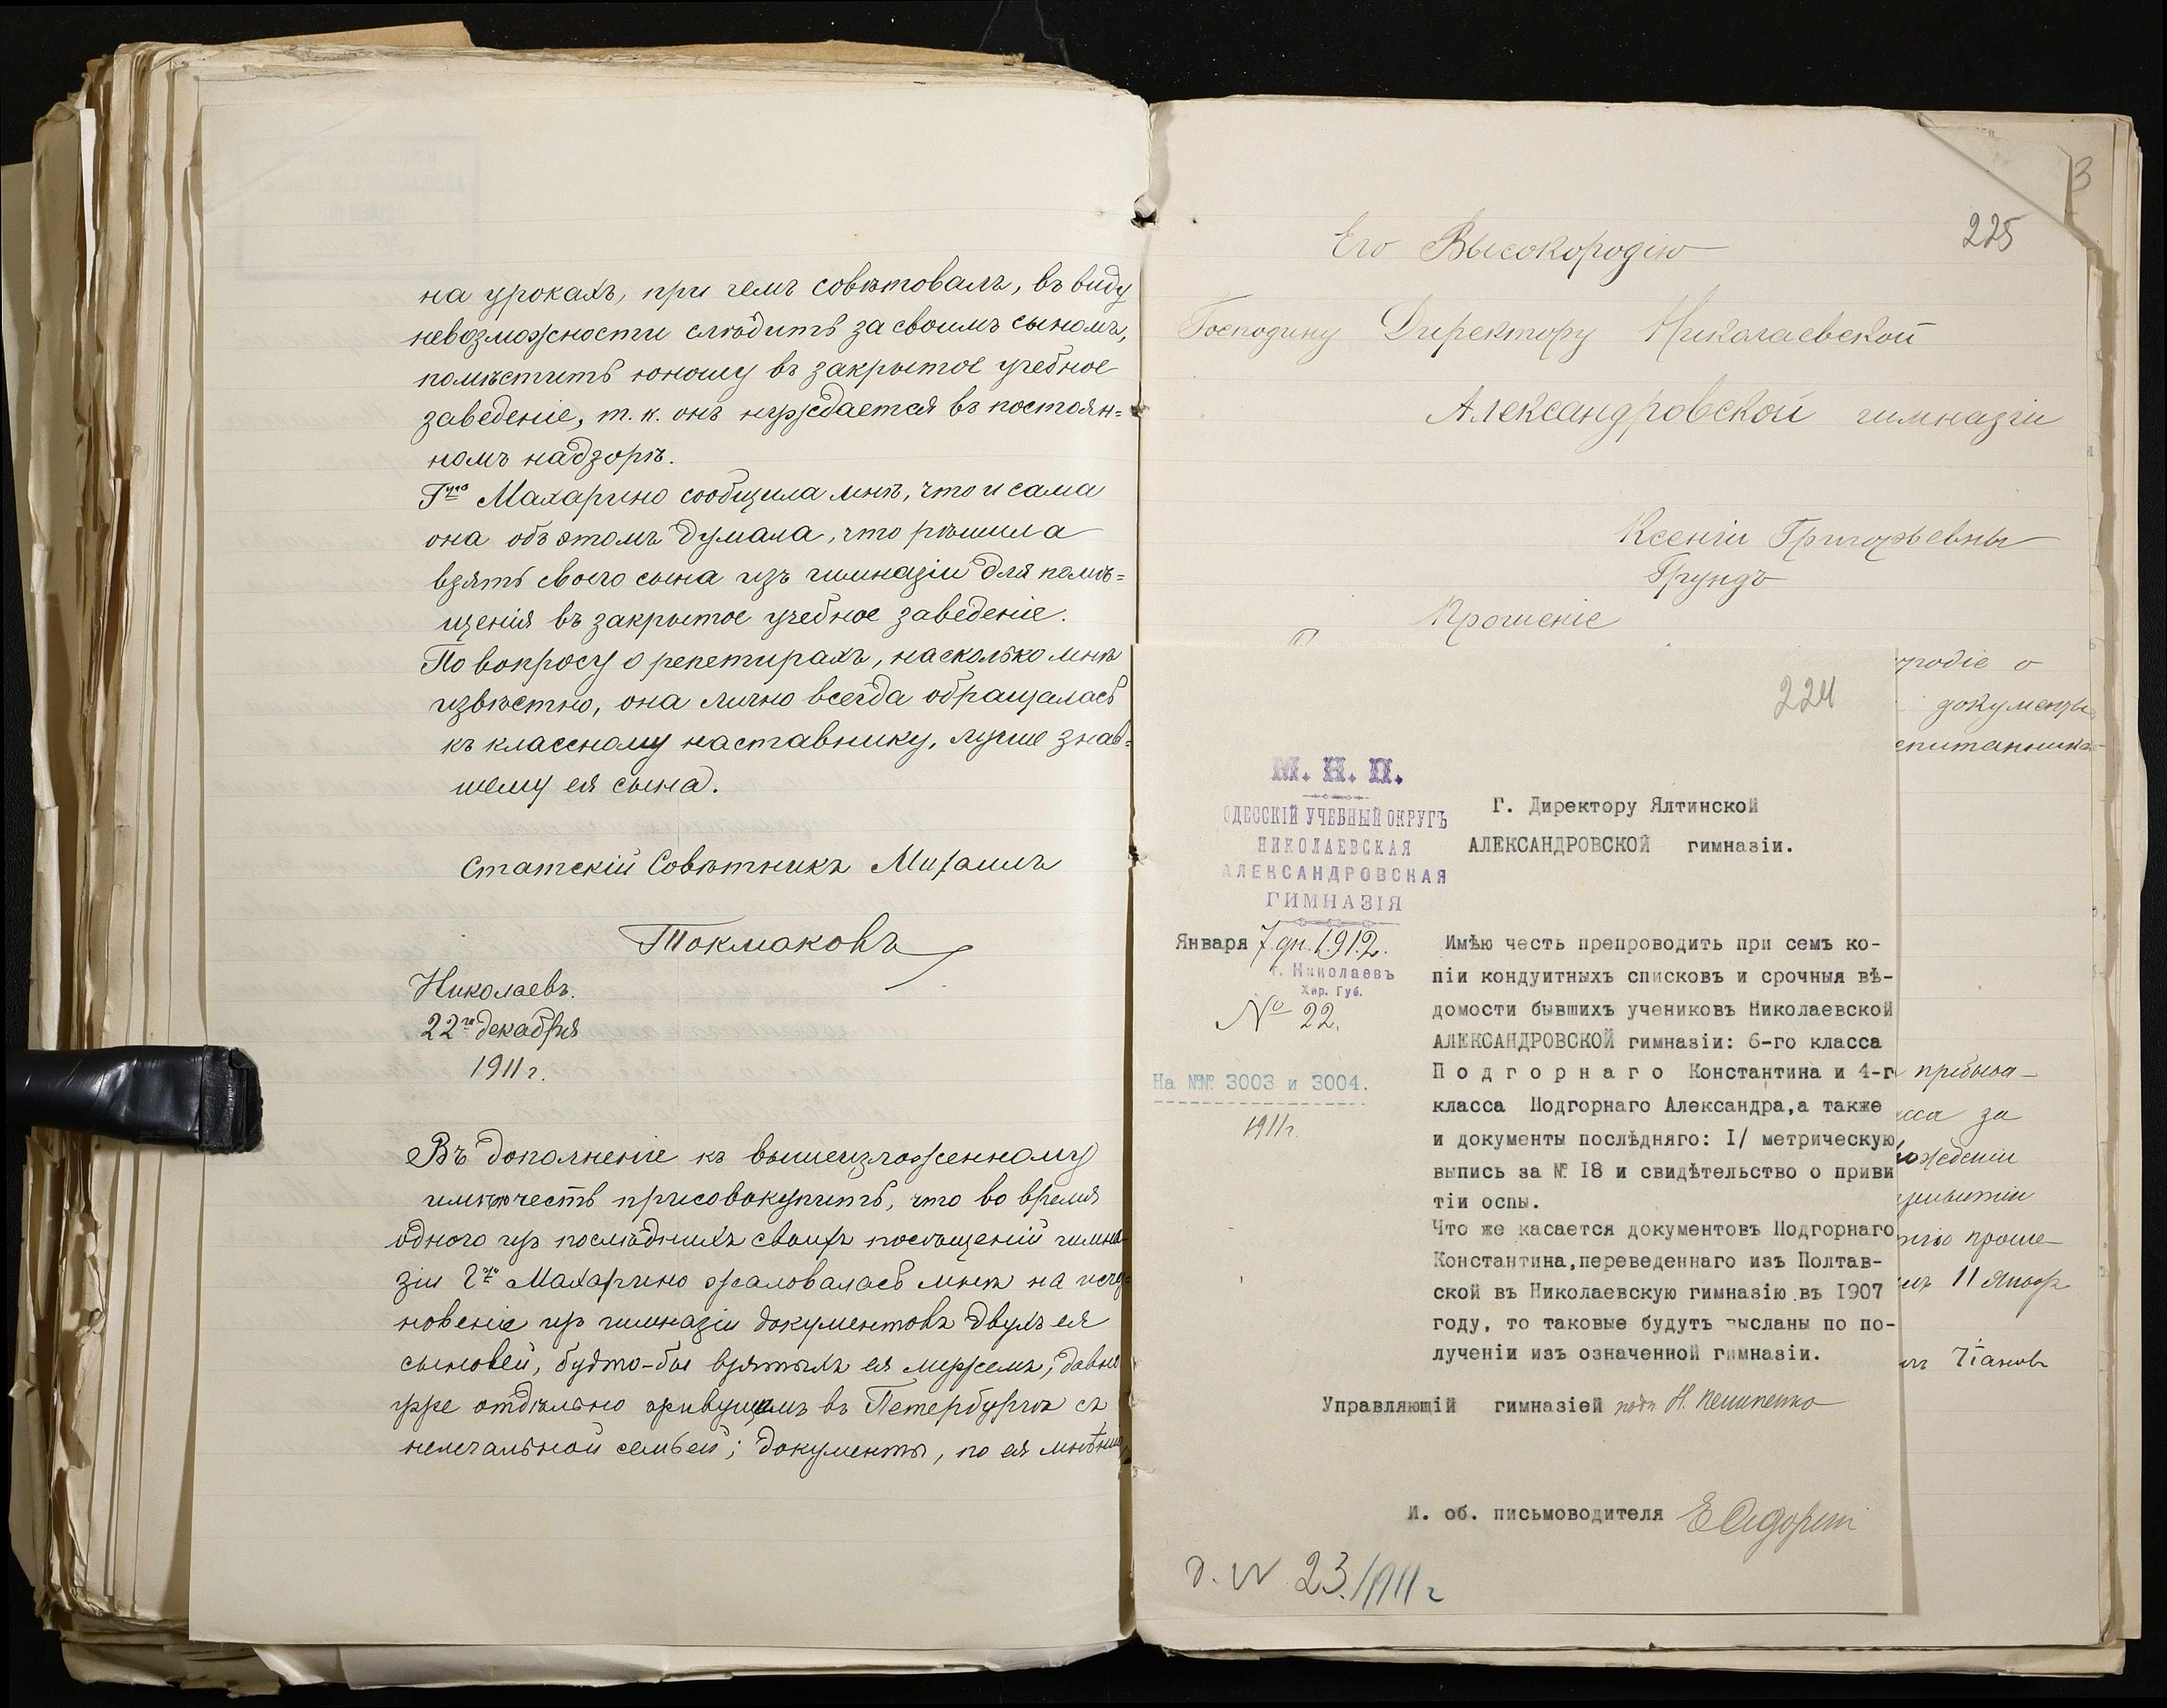 на урокахъ, при чемъ совѣтовалъ, въ виду
невозможности слѣдить за своимъ сыномъ,
помѣстить юношу въ закрытое учебное
заведеніе, т. к. онъ нуждается въ постоян=
номъ надзорѣ.
Г-жа Махарино сообщила мнѣ, что и сама
она объ этомъ думала, что рѣшила
взять своего сына изъ гимназіи для помѣ=
щенія въ закрытое учебное заведеніе.
По вопросу о репетирахъ, насколько мнѣ
извѣстно, она лично всегда обращалась
къ классному наставнику, лучше знав=
шему ея сына.
Статскій Совѣтникъ Михаилъ
Токмаковъ
Николаевъ.
22го декабря
1911 г.
Въ дополненіе къ вышеизложенному
имѣю честь присовокупить, что во время
одного изъ послѣднихъ своихъ посѣщеній гимна-
зіи Г-жа Махарино жаловалась мнѣ на исчез=
новеніе изъ гимназіи документовъ двухъ ея
сыновей, будто-бы взятыхъ ея мужемъ, давно
уже отдѣльно живущимъ въ Петербургѣ съ
нелегальной семьей; документы, по ея мнѣнію,
3
225
Его Высокородію
Господину Директору Николаевской
Александровской гимназіи
Ксеніи Григорьевны
Грундъ
Прошеніе
родіе о
документы
спитанника
прибыва-
сса за
ождении
ривитіи
проше-
11 Январ
224
М. Н. П.
ОДЕССКІЙ УЧЕБНЫЙ ОКРУГЪ
НИКОЛАЕВСКАЯ
АЛЕКСАНДРОВСКАЯ
ГИМНАЗІЯ
Января 7 дн. 1912.
г. Николаевъ
Хер. Губ.
№ 22.
На №№ 3003 и 3004.
1911 г.
Г. Директору Ялтинской
АЛЕКСАНДРОВСКОЙ гимназіи.
Имѣю честь препроводить при семъ ко-
піи кондуитныхъ списковъ и срочныя вѣ-
домости бывшихъ учениковъ Николаевской
АЛЕКСАНДРОВСКОЙ гимназіи: 6-го класса
Подгорнаго Константина и 4-г
класса Подгорнаго Александра,а также
и документы послѣдняго: I/ метрическую
выпись за № I8 и свидѣтельство о приви
тіи оспы.
Что же касается документовъ Подгорнаго
Константина,переведеннаго изъ Полтав-
ской въ Николаевскую гимназію въ I907
году, то таковые будутъ высланы по по-
лученіи изъ означенной гимназіи.
Управляющій гимназіей подп. Н.
И. об. письмоводителя
д. № 23./1911 г